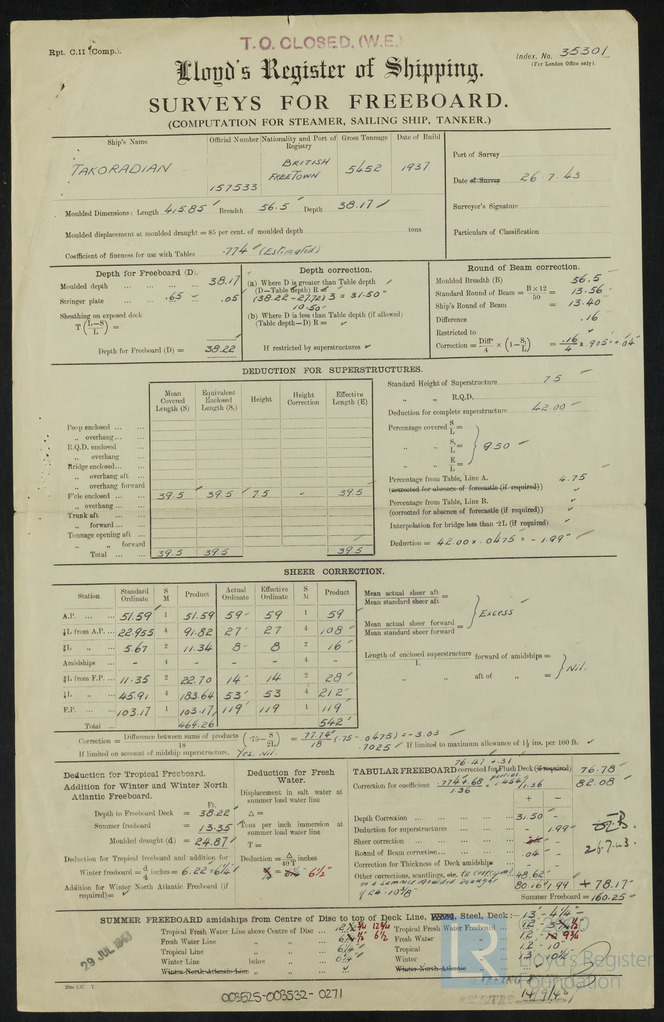 T.O. CLOSED. (W.E.)
Rpt. C.11 (Comp.).
Index. No. 35301
(For London Office only).
Lloyd's Register of Shipping.
SURVEYS FOR FREEBOARD.
(COMPUTATION FOR STEAMER, SAILING SHIP, TANKER.)
Ship's Name
Official Number
Nationality and Port of Registry
Gross Tonnage
Date of Build
TAKORADIAN
157533
BRITISH
FREETOWN
5452
1937
Port of Survey
Date of Survey 26.7.43
Surveyor's Signature
Particulars of Classification
Moulded Dimensions: Length 415.85 Breadth 56.5 Depth 38.17
Moulded displacement at moulded draught = 85 per cent. of moulded depth tons
Coefficient of fineness for use with Tables .774 (Estimated)
Depth for Freeboard (D).
Moulded depth ... 38.17
Stringer plate ... .65 ... .05
Sheathing on exposed deck
T (L-S/L) =
Depth for Freeboard (D) = 38.22
Depth correction.
(a) Where D is greater than Table depth
(D-Table depth) R =
(38.22-27.72) 3 = 31.50
10.50
(b) Where D is less than Table depth (if allowed)
(Table depth-D) R =
If restricted by superstructures
Round of Beam correction.
Moulded Breadth (B) 56.5
Standard Round of Beam = B×12/50 = 13.56
Ship's Round of Beam = 13.40
Difference .16
Restricted to
Correction = Diffce/4 × (1-S/L) = .16/4 × .905 = +.04
DEDUCTION FOR SUPERSTRUCTURES.
Mean Covered Length (S)
Equivalent Enclosed Length (S₁)
Height
Height Correction
Effective Length (E)
Poop enclosed
„ overhang
R.Q.D. enclosed
„ overhang
Bridge enclosed
„ overhang aft
„ overhang forward
F'cle enclosed 39.5 39.5 7.5 - 39.5
„ overhang
Trunk aft
„ forward
Tonnage opening aft
„ „ forward
Total 39.5 39.5 39.5
Standard Height of Superstructure 7.5
„ „ R.Q.D.
Deduction for complete superstructure 42.00
Percentage covered S/L =
„ „ S₁/L = 9.50
„ „ E/L =
Percentage from Table, Line A. 4.75
(corrected for absence of forecastle (if required))
Percentage from Table, Line B.
(corrected for absence of forecastle (if required))
Interpolation for bridge less than ·2L (if required)
Deduction = 42.00 × .0475 = -1.99
SHEER CORRECTION.
Station
Standard Ordinate
S M
Product
Actual Ordinate
Effective Ordinate
S M
Product
A.P. 51.59 1 51.59 59 59 1 59
¼L from A.P. 22.955 4 91.82 27 27 4 108
⅓L „ 5.67 2 11.34 8 8 2 16
Amidships - 4 - - - 4 -
⅓L from F.P. 11.35 2 22.70 14 14 2 28
¼L „ 45.91 4 183.64 53 53 4 212
F.P. 103.17 1 103.17 119 119 1 119
Total 464.26 542
Mean actual sheer aft / Mean standard sheer aft =
Mean actual sheer forward / Mean standard sheer forward =
Excess
Length of enclosed superstructure forward of amidships = / L
„ „ aft of „ =
Nil.
Correction = Difference between sums of products/18 (·75 - S/2L) = 77.74/18 (.75-.0475) = -3.03
.7025
If limited to maximum allowance of 1½ ins. per 100 ft.
If limited on account of midship superstructure. Yes. Nil.
Deduction for Tropical Freeboard.
Addition for Winter and Winter North Atlantic Freeboard.
Ft.
Depth to Freeboard Deck = 38.22
Summer freeboard = 13.35
Moulded draught (d) = 24.87
Deduction for Tropical freeboard and addition for Winter freeboard = d/4 inches = 6.22 = 6¼"
Addition for Winter North Atlantic Freeboard (if required) =
Deduction for Fresh Water.
Displacement in salt water at summer load water line
Δ =
Tons per inch immersion at summer load water line
T =
Deduction = Δ/40T inches
6½"
76.47 + .31
TABULAR FREEBOARD corrected for Flush Deck (if required) 76.78
Correction for coefficient .774+.68/1.36 = 1.454/1.36 82.08
+ -
Depth Correction 31.50
Deduction for superstructures 1.99
Sheer correction
Round of Beam correction .04
Correction for Thickness of Deck amidships -
Other corrections, scantlings, etc. to correspond 48.62
to a summer moulded draught
of 24'-10⅜"
80.16 1.99 + 78.17
Summer Freeboard = 160.25
26.7.43
SUMMER FREEBOARD amidships from Centre of Disc to top of Deck Line, Wood, Steel, Deck:- 13'-4¼"
Tropical Fresh Water Line above Centre of Disc 12¾
Fresh Water Line „ „ 6½
Tropical Line „ „ 6¼
Winter Line below „ 6¼
Winter North Atlantic Line „ „
Tropical Fresh Water Freeboard
Fresh Water „ 9¾
Tropical „ 12' 10"
Winter „ 13 10½
Winter North Atlantic „
29 JUL 1943
LR
Lloyd's Register
Foundation
003525-003532-0271